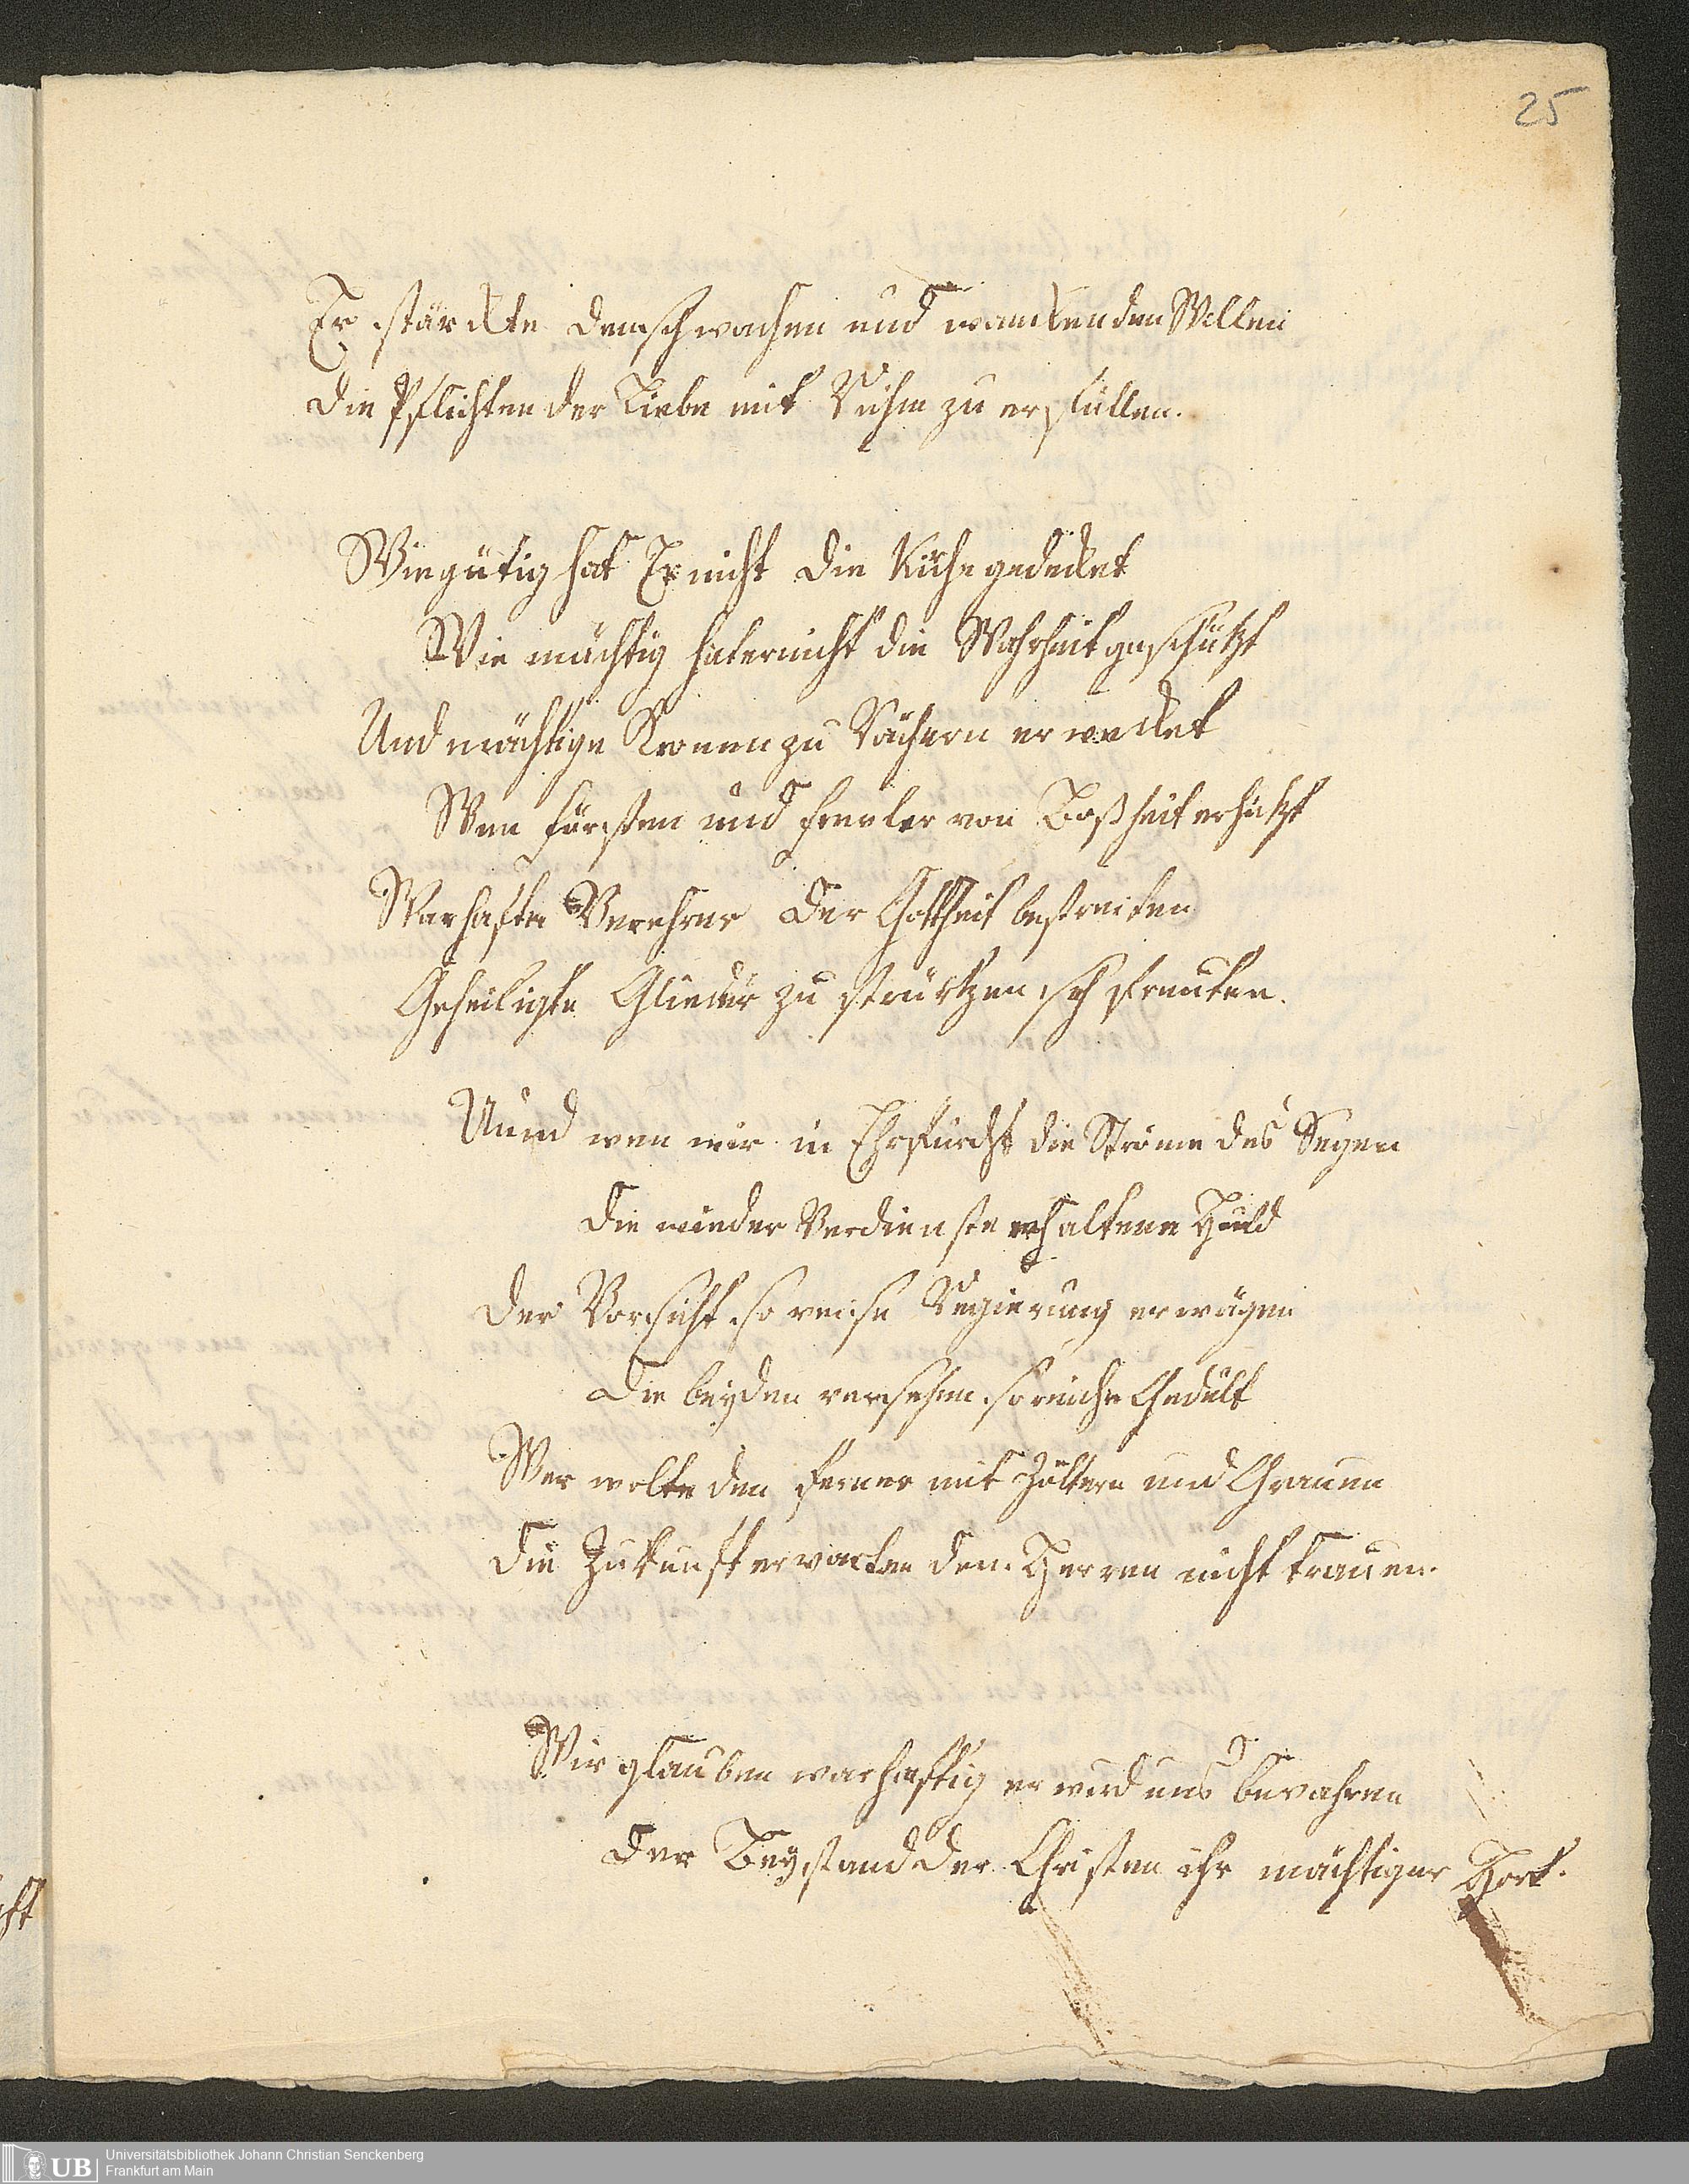 25
Er stärckte den schwachen und wanckenden Willen
Die Pflichten der Liebe mit Ruhm zu erfüllen.
Wie gütig hat Er nicht die Kirche gedecket
Wie mächtig hat er nicht die Wahrheit geschützt
Und mächtige Kronen zu Rächern erwecket
Wen Fürsten und Frevler von Boßheit erhitzt
Warhafte Verehrer der Gottheit bestreiten
Geheiligte Glieder zu stürtzen sich freuten.
Und wen wir in Ehrfurcht die Ströme des Segen
Die wieder Verdienste erhaltene Huld
Der Vorsicht so weise Regierung erwägen
Die beyden versehen so reiche Gedult
Wer wolte den ferner mit Zittern und Grauen
Die Zukunft erwarten dem Herren nicht trauen.
Wir glauben warhaftig er wird uns bewahren
Der Beystand der Christen ihr mächtiger Hort.
Universitätsbibliothek Johann Christian Senckenberg
Frankfurt am Main
UB